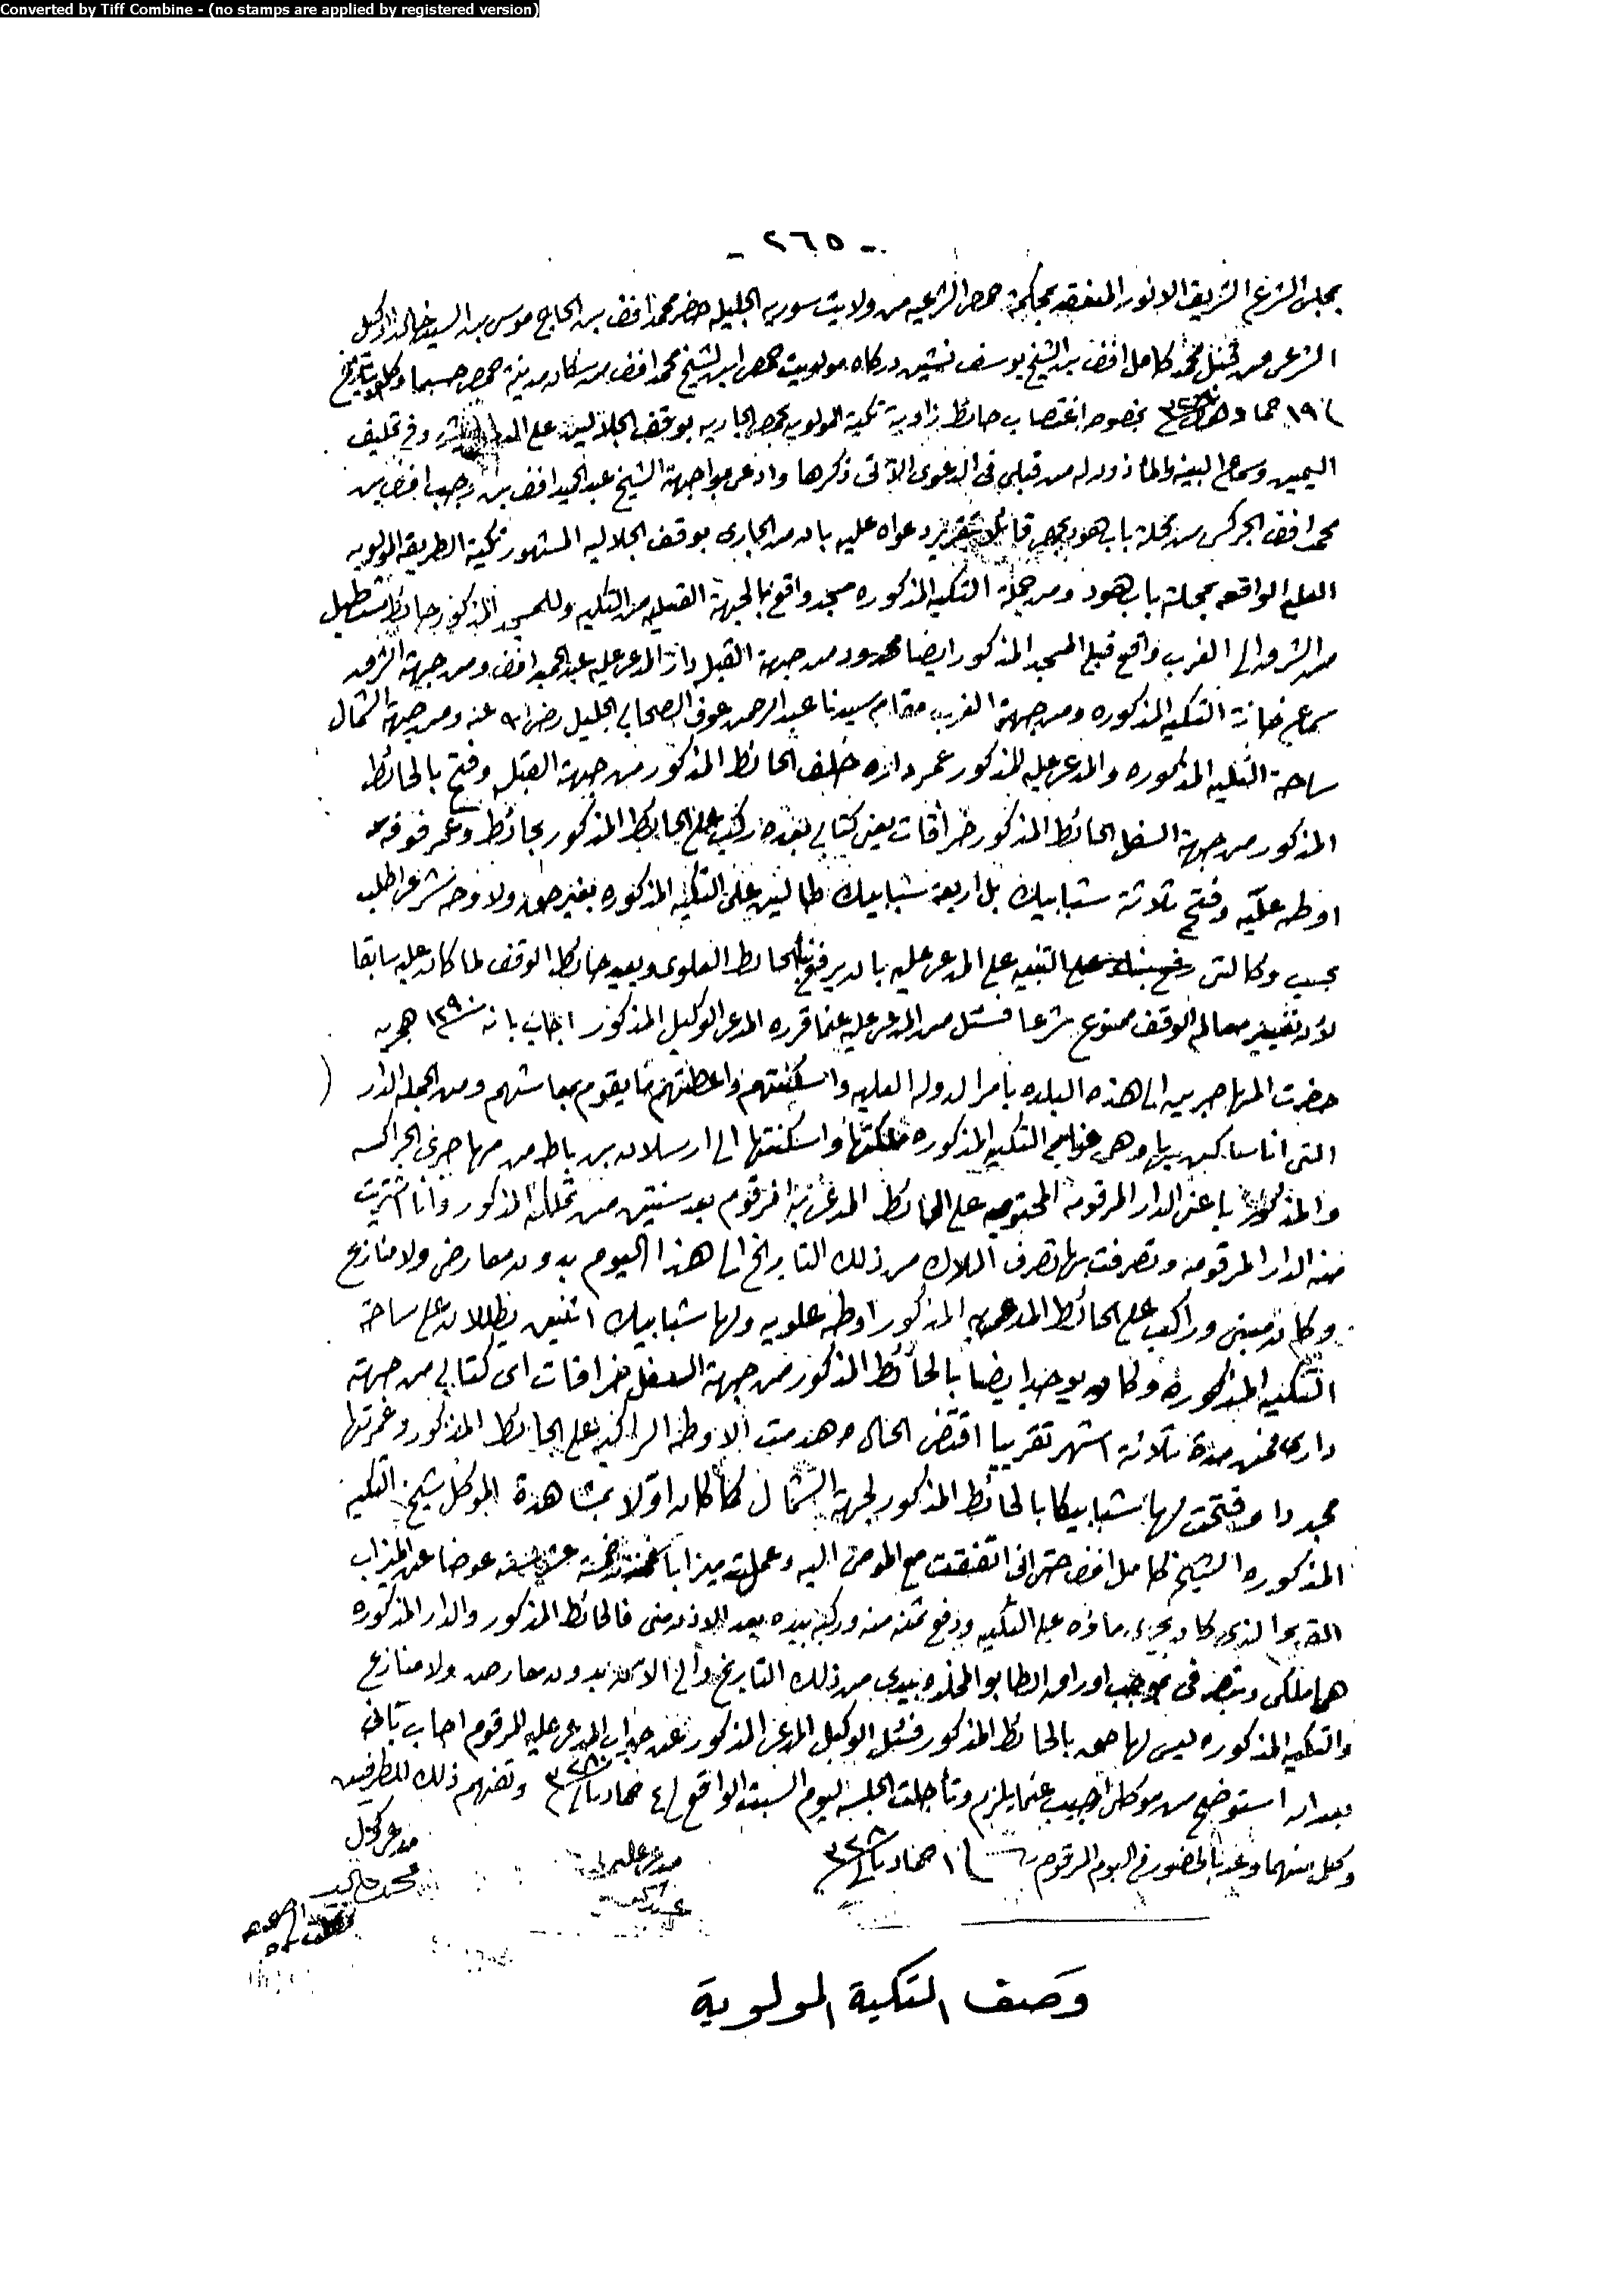 Converted by Tiff Combine - (no stamps are applied by registered version)
- ٢٦٥ -
بمجلس الشرع الشريف الانور المنعقد بمحكمة حمص الشرعيه من ولايت سوريه الجليله حضر محمد افندى بن الحاج موسى بن السيد خالد الوكيل
الشرعى من قبل محمد كامل افندى بن الشيخ يوسف نشين دركاه مولويت حمص ابن الشيخ محمد افندى من سكان مدينة حمص حسبما وكله بتاريخ
١٩ بخصوص اغتصاب حائط زاوية تكية المولويه بحمص الجاريه بوقف الجلاليه على وفى تحليف
اليمين وسماع البينه والمأذون له من قبلى فى الدعوى الآتى ذكرها وادعى بمواجهة الشيخ عبد الحميد افندى بن رجب افندى بن
محمد افندى الجركس من محلة باب هود بحمص قائلا بتقرير دعواه عليه بان من الجارى بوقف الجلاليه المشهور تكية الطريقه المولويه
العليه الواقعه بمحلة باب هود ومن جملة التكيه المذكوره مسجد واقع بالجهة القبليه من التكيه وللمسجد المذكور حائط مستطيل
من الشرق الى الغرب واقع قبلى المسجد المذكور ايضا محدود من جهة القبله دار المدعى عليه عبد الحميد افندى ومن جهة الشرق
سماع خانة التكيه المذكوره ومن جهة الغرب مقام سيدنا عبد الرحمن عوف الصحابى الجليل رضى الله عنه ومن جهة الشمال
ساحة التكيه المذكوره والمدعى عليه المذكور عمر داره خلف الحائط المذكور من جهة القبله وفتح بالحائط
المذكور من جهة السفل الحائط المذكور خراقات يعنى كتابى بعده ركب على الحائط المذكور بحائط وعمر فوقه
اوطه عليّه وفتح ثلاثة شبابيك بل اربعة شبابيك طالين على التكيه المذكوره بغير حق ولا وجه شرعى اطلب
بحسب وكالتى التنبيه على المدعى عليه بان يرفع الحائط العلوى ويعيد حائط الوقف لما كان عليه سابقا
لان تغيير معالم الوقف ممنوع شرعا فسئل من المدعى عليه عما قرره المدعى الوكيل المذكور اجاب بانه ١٢٩٠ هجريه
حضرت المهاجرين الى هذه البلده بامر الدوله العليه واسكنتهم واعطتهم ما يقوم بمعاشهم ومن الجمله الدار (
التى انا ساكن بها وهى التكيه المذكوره ملكتها واسكنتها الى ارسلان بن باط من مهاجرى الجراكسه
والمذكور باعنى الدار المرقومه المحتويه على الحائط المدعى به المرقوم بعد سنتين من تملكه المذكور وانا اشتريت
منه الدار المرقومه وتصرفت بها تصرف الملاك من ذلك التاريخ الى هذا اليوم بدون معارض ولا منازع
وكان مبنى وراكب على الحائط المدعى به المذكور اوطه علويه ولها شبابيك اثنين يطلان على ساحة
التكيه المذكوره وكان يوجد ايضا بالحائط المذكور من جهة السفل خراقات اى كتابى من جهة
دارى فمن مدة ثلاثة اشهر تقريبا اقتضى الحال وهدمت الاوطه الراكبه على الحائط المذكور وعمرتها
مجددا وفتحت لها شبابيكا بالحائط المذكور لجهة الشمال كما كان اولا بمشاهدة الموكل شيخ التكيه
المذكوره الشيخ كامل افندى حتى انى اتفقت مع المومى اليه وعملت ميزابا عوضا عن الميزاب
القديم الذى كان يجرى ماؤه على التكيه ودفع ثمنه منه وركبه بيده بعد الاذن منى فالحائط المذكور والدار المذكوره
هما ملكى وبتصرفى بموجب اوراق الطابو بيدى من ذلك التاريخ والى الآن بدون معارض ولا منازع
والتكيه المذكوره ليس لها حق بالحائط المذكور فسئل الوكيل المدعى المذكور عن جواب المدعى عليه المرقوم اجاب بانى
بعد ان استوضح من موكلى اجيب عما يلزم وتأجلت الجلسه ليوم السبت الواقع وتفهم ذلك للطرفين
وكل منهما وعد بالحضور فى اليوم المرقوم
مدعى وكيل
محمد خالد
مدعى عليه
وَصف التكية المولوية